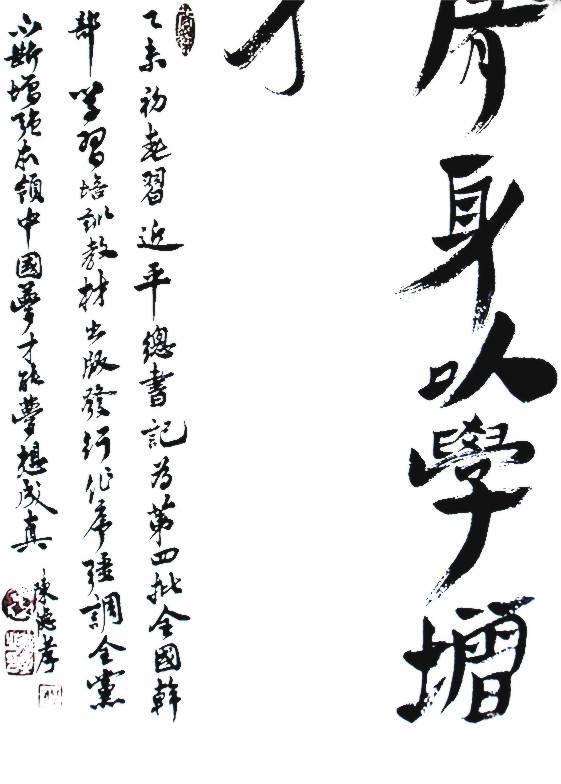 身以學增
乙未初春習近平總書記為第四批全國幹
部學習培訓教材出版發行作序強調全黨
不斷增強本領中國夢才能夢想成真
陳德孝